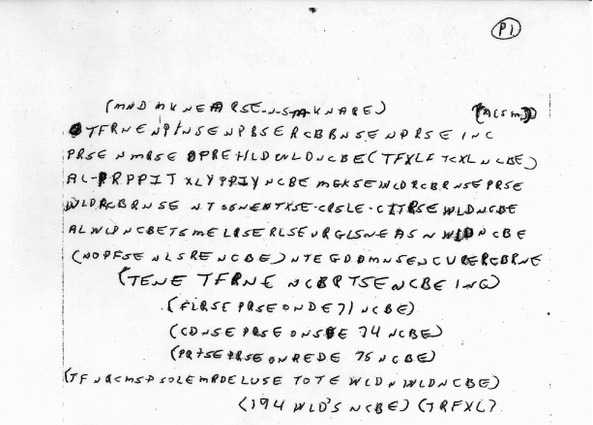 P1
(MND MKNEARSE-N-S-MKNARE) (ACSM)
TFRNE NPTNSE NPBSE RCBBNSE NPRSE INC
PRSE NMRSE OPRE HLD WLD NCBE (TFXLF TCXL NCBE)
AL-PRPPIT XLY PPIY NCBE MGKSE WLDRCBRNSE PRSE
WLDRCBRNSE NTSGNENTXSE-CRSLE-CITRSE WLD NCBE
ALWLD NCBE TSME LRSE RLSE URGLSNE AS N WLD NCBE
(NOPFSE NLSRE NCBE) NTEGDDMNSE NCURE RCBRNE
(TENE TFRNE NCBRTSE NCBE INC)
(FLRSE PRSE ONDE 71 NCBE)
(CDNSE PRSE ONSDE 74 NCBE)
(PRTSE PRSE ONREDE 75 NCBE)
(TFNRCMSP SOLE MRDE LUSE TOTE WLD N WLD NCBE)
(194 WLD'S NCBE) (TRFXL)